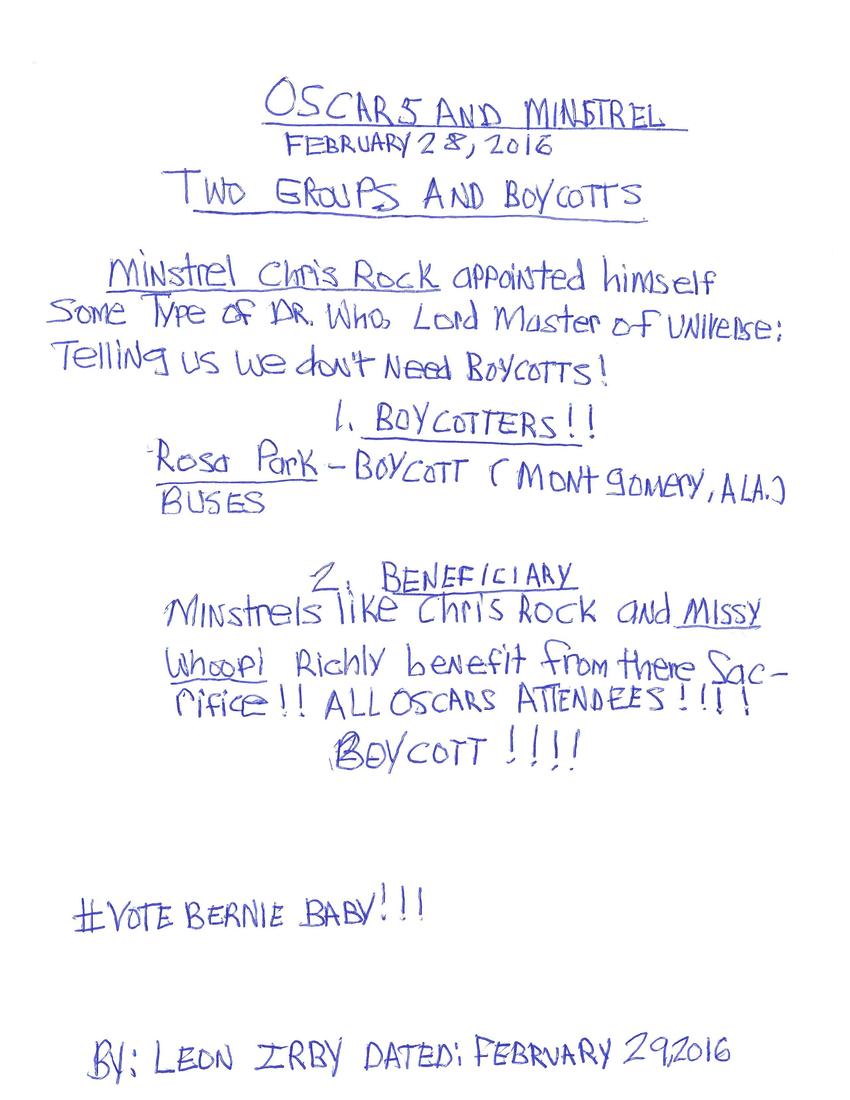 OSCARS AND MINSTREL
FEBRUARY 28, 2016
TWO GROUPS AND BOYCOTTS
Minstrel Chris Rock appointed himself
Some Type of DR. Who, Lord Master of Universe:
Telling us we don't Need BOYCOTTS!
1. BOYCOTTERS!!
Rosa Park - BOYCOTT (Montgomery, ALA.)
BUSES
2. BENEFICIARY
Minstrels like Chris Rock and MISSY
Whoopi Richly benefit from there Sac-
rifice!! ALL OSCARS ATTENDEES!!!!
BOYCOTT!!!!
#VOTE BERNIE BABY!!!
BY: LEON IRBY DATED: FEBRUARY 29,2016